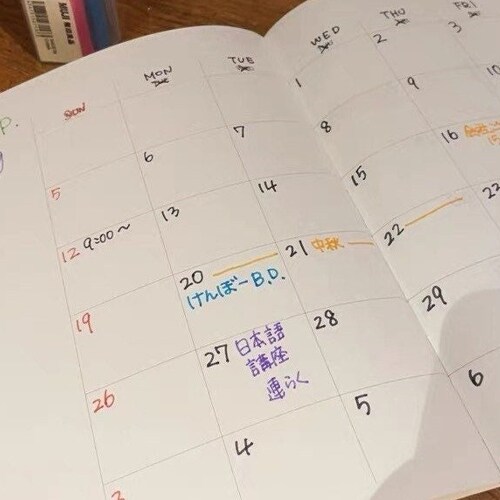 MUJ 無印良品
P.
SUN MON TUE WED THU FRI
1 2 3
5 6 7 8 9 10
12 9:00〜 13 14 15 16
19 20 21 中秋 22 23
けんぼーB.D.
26 27 28 29
日本語
講座
連らく
3 4 5 6